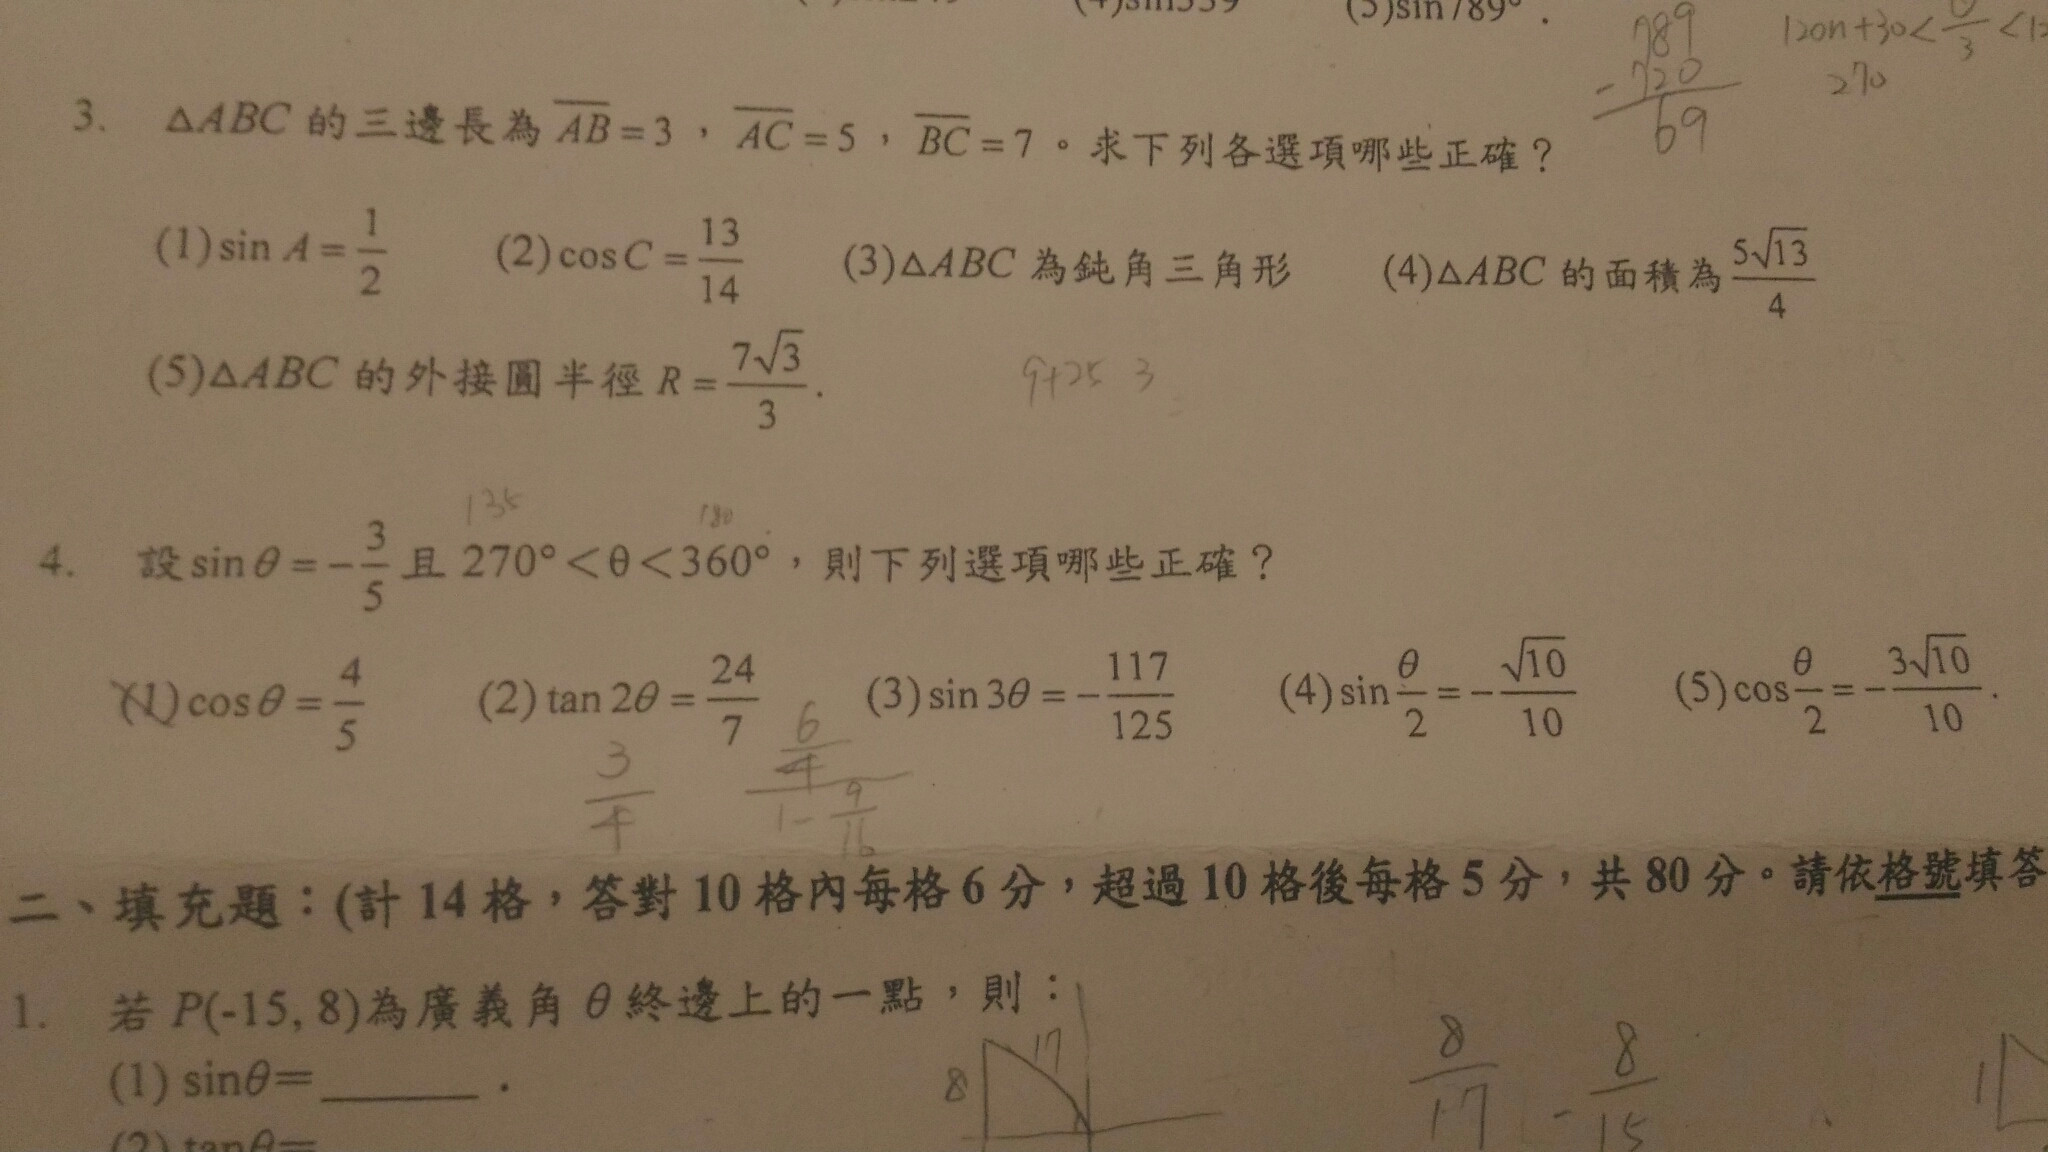 (5)sin789°.
789
-720
69
120n+30<θ/3<12
270
3. △ABC 的三邊長為 AB=3,AC=5,BC=7。求下列各選項哪些正確?
(1)sin A=1/2 (2)cosC=13/14 (3)△ABC 為鈍角三角形 (4)△ABC 的面積為 5√13/4
(5)△ABC 的外接圓半徑 R=7√3/3.
9+25 3
135 180
4. 設sinθ=-3/5 且 270°<θ<360°,則下列選項哪些正確?
(1)cosθ=4/5 (2)tan2θ=24/7 (3)sin3θ=-117/125 (4)sin θ/2=-√10/10 (5)cos θ/2=-3√10/10.
3/4 6/4 / 1-9/16
二、填充題:(計 14 格,答對 10 格內每格 6 分,超過 10 格後每格 5 分,共 80 分。請依格號填答
1. 若 P(-15, 8)為廣義角 θ 終邊上的一點,則:
(1) sinθ=______.
8 17 8/17 -8/15 1
(2) tanθ=